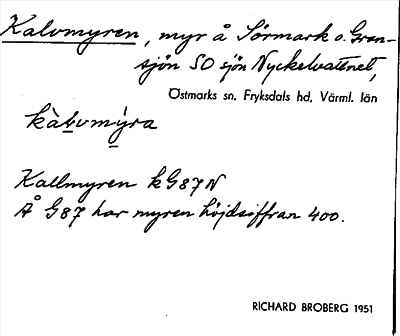 Kalvmyren, myr å Sörmark o. Gran-
sjön SO sjön Nyckelvattnet,
Östmarks sn. Fryksdals hd, Värml. län
kàlvmýra
Kallmyren kG87N
Å G87 har myren höjdsiffran 400.
RICHARD BROBERG 1951